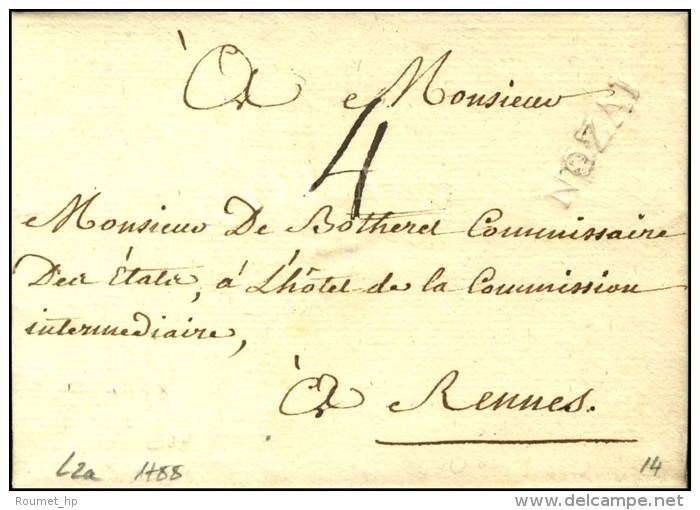 À Monsieur
NOZAI
4
Monsieur De Botherel Commissaire
Des États, à L'hôtel de la Commission
intermediaire,
À Rennes.
L2a 1788
14
Roumet_hp
© delcampe.net